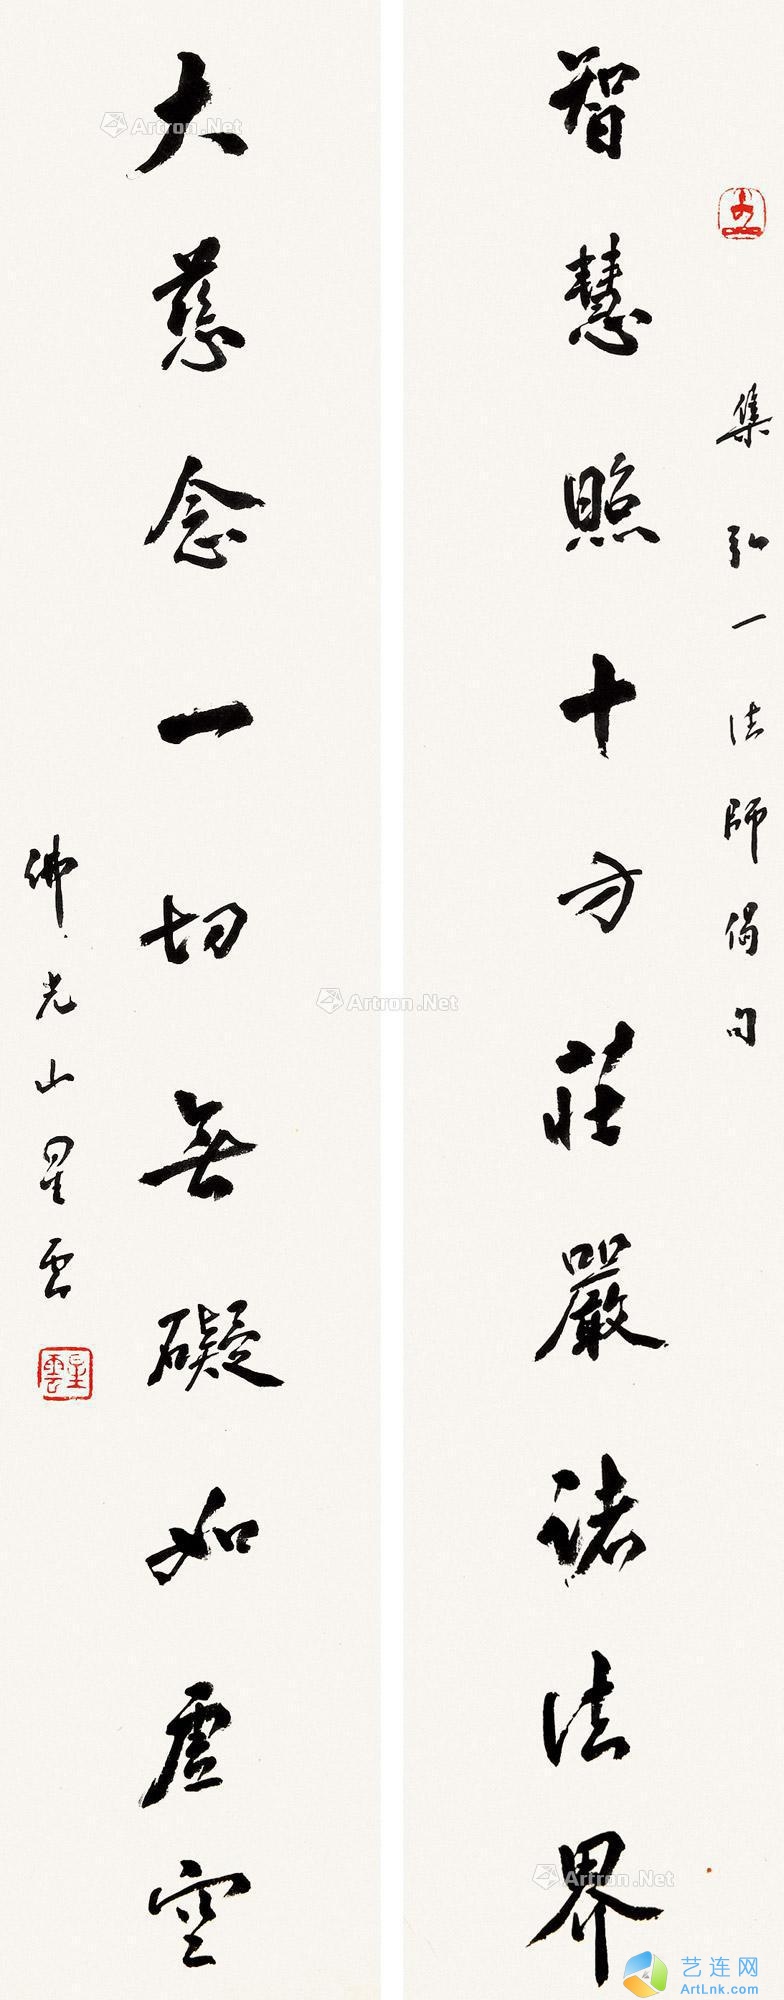 集弘一法師偈句
智慧照十方莊嚴諸法界
大慈念一切無礙如虛空
佛光山星雲
星雲
Artron.Net
Artron.Net
Artron.Net
Artron.Net
艺连网
ArtLnk.com